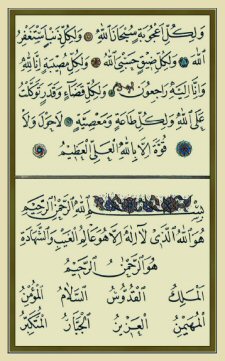 وَلِكُلِّ أُعْجُوبَةٍ سُبْحَانَ اللهِ وَلِكُلِّ ذَنْبٍ أَسْتَغْفِرُ
اللهَ وَلِكُلِّ ضِيقٍ حَسْبِيَ اللهُ وَلِكُلِّ مُصِيبَةٍ إِنَّا لِلّٰهِ
وَإِنَّا إِلَيْهِ رَاجِعُونَ وَلِكُلِّ قَضَاءٍ وَقَدَرٍ تَوَكَّلْتُ
عَلَى اللهِ وَلِكُلِّ طَاعَةٍ وَمَعْصِيَةٍ لَا حَوْلَ وَلَا
قُوَّةَ إِلَّا بِاللهِ الْعَلِيِّ الْعَظِيمِ
بِسْمِ اللهِ الرَّحْمٰنِ الرَّحِيمِ
هُوَ اللهُ الَّذِي لَا إِلٰهَ إِلَّا هُوَ عَالِمُ الْغَيْبِ وَالشَّهَادَةِ
هُوَ الرَّحْمٰنُ الرَّحِيمُ
الْمَلِكُ الْقُدُّوسُ السَّلَامُ الْمُؤْمِنُ
الْمُهَيْمِنُ الْعَزِيزُ الْجَبَّارُ الْمُتَكَبِّرُ